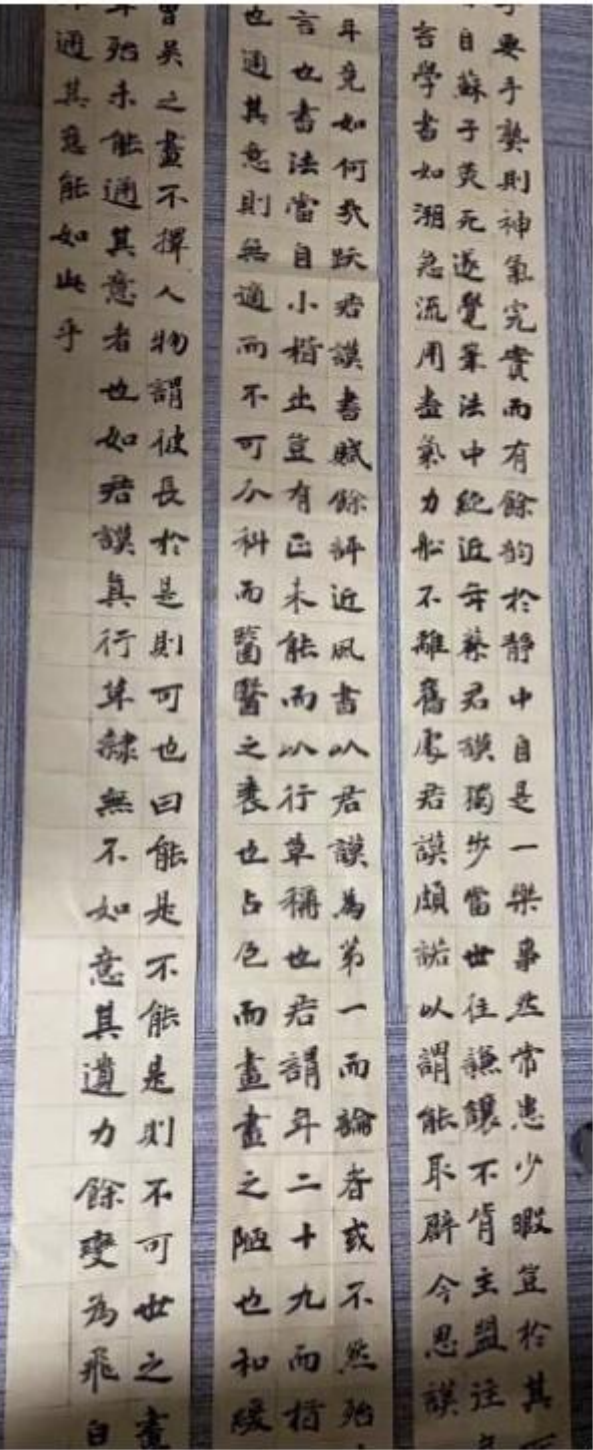 要手熟則神氣完實而有餘韵於靜中自是一樂事然常患少暇豈於其
自蘇子美死遂覺筆法中絕近年蔡君謨獨步當世往謙讓不肯主盟往
言學書如溯急流用盡氣力船不離舊處君謨頗諾以謂能取辟今思謨
年竟如何哉跋君謨書賦餘評近風書以君謨為第一而論者或不然殆
言也書法當自小楷出豈有正未能而以行草稱也君謂年二十九而楷
也通其意則無適而不可分科而醫醫之衰也占色而畫畫之陋也和緩
曾吳之畫不擇人物謂彼長於是則可也曰能是不能是則不可世之畫
殆未能通其意者也如君謨真行草隸無不如意其遺力餘變為飛白
通其意能如此乎